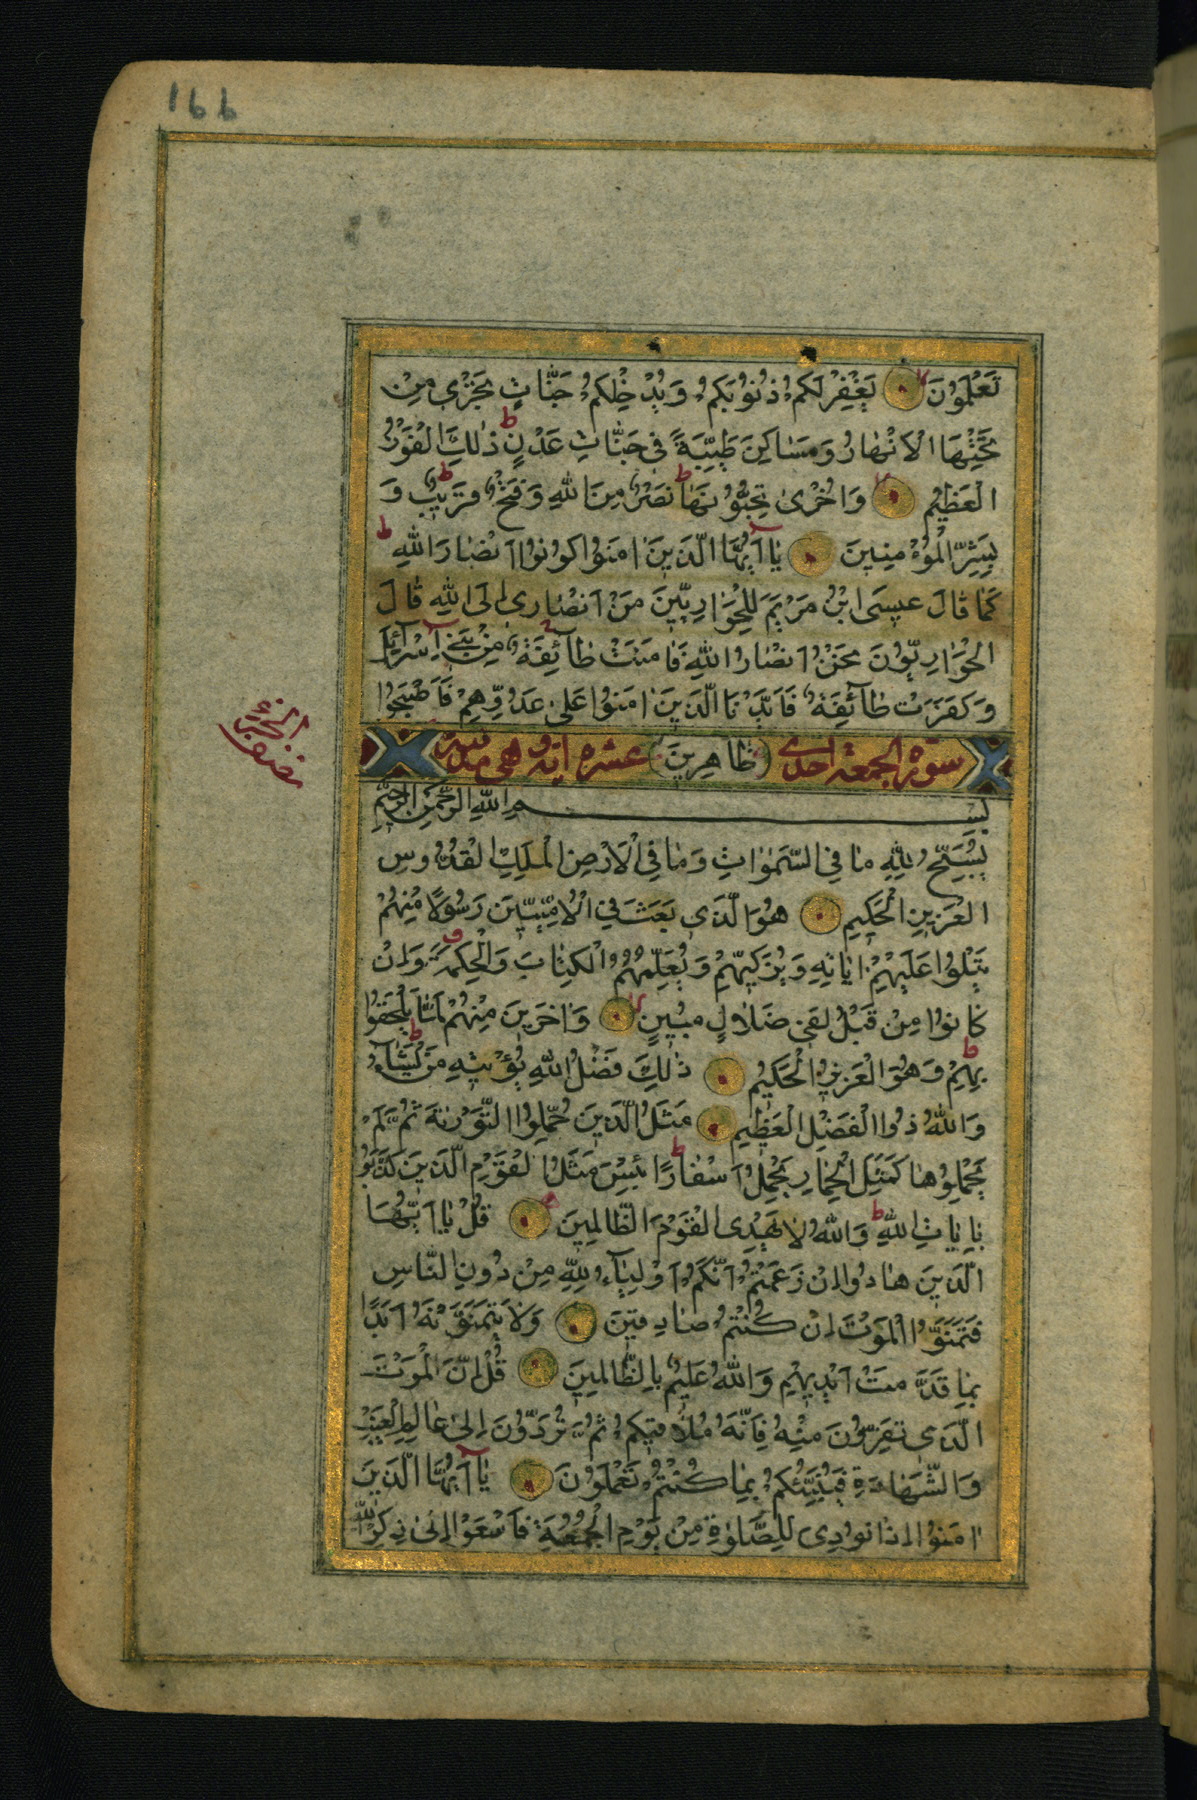 166
تَعْلَمُونَ يَغْفِرْ لَكُمْ ذُنُوبَكُمْ وَيُدْخِلْكُمْ جَنَّاتٍ تَجْرِي مِنْ
تَحْتِهَا الْاَنْهَارُ وَمَسَاكِنَ طَيِّبَةً فِي جَنَّاتِ عَدْنٍ ط ذٰلِكَ الْفَوْزُ
الْعَظِيمُ وَاُخْرٰى تُحِبُّونَهَا ط نَصْرٌ مِنَ اللّٰهِ وَفَتْحٌ قَرِيبٌ ط وَ
بَشِّرِ الْمُؤْمِنِينَ يَا اَيُّهَا الَّذِينَ اٰمَنُوا كُونُوا اَنْصَارَ اللّٰهِ ط
كَمَا قَالَ عِيسَى ابْنُ مَرْيَمَ لِلْحَوَارِيِّينَ مَنْ اَنْصَارِي اِلَى اللّٰهِ قَالَ
الْحَوَارِيُّونَ نَحْنُ اَنْصَارُ اللّٰهِ فَاٰمَنَتْ طَآئِفَةٌ مِنْ بَنِي اِسْرَآئِيلَ
وَكَفَرَتْ طَآئِفَةٌ فَاَيَّدْنَا الَّذِينَ اٰمَنُوا عَلٰى عَدُوِّهِمْ فَاَصْبَحُوا
سورة الجمعة احدى (ظَاهِرِينَ) عشره اية وهي مدنية
نصف الحزب
بِسْمِ اللّٰهِ الرَّحْمٰنِ الرَّحِيمِ
يُسَبِّحُ لِلّٰهِ مَا فِي السَّمٰوَاتِ وَمَا فِي الْاَرْضِ الْمَلِكِ الْقُدُّوسِ
الْعَزِيزِ الْحَكِيمِ هُوَ الَّذِي بَعَثَ فِي الْاُمِّيِّينَ رَسُولًا مِنْهُمْ
يَتْلُوا عَلَيْهِمْ اٰيَاتِهِ وَيُزَكِّيهِمْ وَيُعَلِّمُهُمُ الْكِتَابَ وَالْحِكْمَةَ وَاِنْ
كَانُوا مِنْ قَبْلُ لَفِي ضَلَالٍ مُبِينٍ وَاٰخَرِينَ مِنْهُمْ لَمَّا يَلْحَقُوا
بِهِمْ ط وَهُوَ الْعَزِيزُ الْحَكِيمُ ذٰلِكَ فَضْلُ اللّٰهِ يُؤْتِيهِ مَنْ يَشَآءُ ط
وَاللّٰهُ ذُوا الْفَضْلِ الْعَظِيمِ مَثَلُ الَّذِينَ حُمِّلُوا التَّوْرٰيةَ ثُمَّ لَمْ
يَحْمِلُوهَا كَمَثَلِ الْحِمَارِ يَحْمِلُ اَسْفَارًا ط بِئْسَ مَثَلُ الْقَوْمِ الَّذِينَ كَذَّبُوا
بِاٰيَاتِ اللّٰهِ ط وَاللّٰهُ لَا يَهْدِى الْقَوْمَ الظَّالِمِينَ قُلْ يَا اَيُّهَا
الَّذِينَ هَادُوا اِنْ زَعَمْتُمْ اَنَّكُمْ اَوْلِيَآءُ لِلّٰهِ مِنْ دُونِ النَّاسِ
فَتَمَنَّوُا الْمَوْتَ اِنْ كُنْتُمْ صَادِقِينَ وَلَا يَتَمَنَّوْنَهُ اَبَدًا
بِمَا قَدَّمَتْ اَيْدِيهِمْ وَاللّٰهُ عَلِيمٌ بِالظَّالِمِينَ قُلْ اِنَّ الْمَوْتَ
الَّذِي تَفِرُّونَ مِنْهُ فَاِنَّهُ مُلَاقِيكُمْ ثُمَّ تُرَدُّونَ اِلٰى عَالِمِ الْغَيْبِ
وَالشَّهَادَةِ فَيُنَبِّئُكُمْ بِمَا كُنْتُمْ تَعْمَلُونَ يَا اَيُّهَا الَّذِينَ
اٰمَنُوا اِذَا نُودِىَ لِلصَّلٰوةِ مِنْ يَوْمِ الْجُمُعَةِ فَاسْعَوْا اِلٰى ذِكْرِ اللّٰهِ